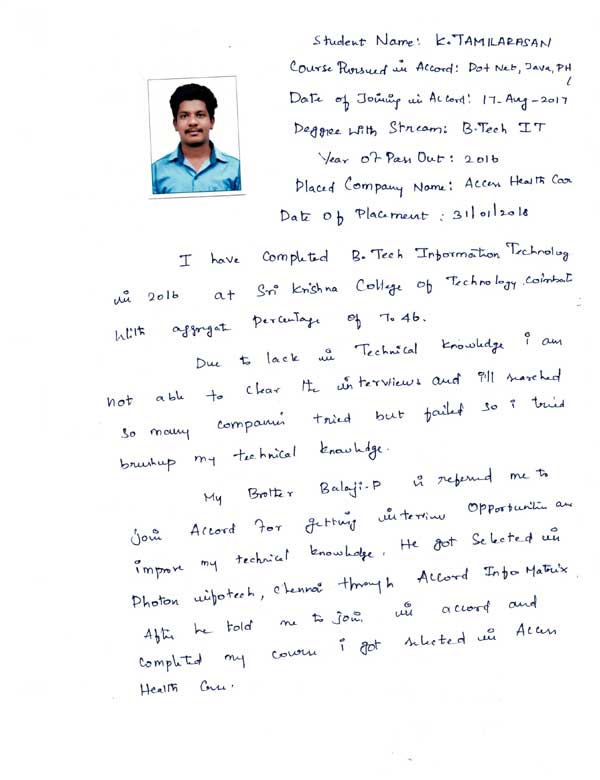 Student Name: K. TAMILARASAN
Course Pursued in Accord: Dot Net, Java, PH
Date of Joining in Accord: 17-Aug-2017
Deggree With Stream: B.Tech IT
Year of Pass Out: 2016
Placed Company Name: Access Health Car
Date of Placement: 31/01/2018
I have completed B.Tech Information Technolog
in 2016 at Sri Krishna College of Technology, Coimbat
With aggregate Percentage of 7.46.
Due to lack in Technical Knowledge i am
not able to clear the interviews and i'll searched
so many companies tried but failed so i tried
brushup my technical knowledge.
My Brother Balaji.P is referred me to
join Accord for getting interview Opportunities an
improve my technical knowledge. He got Selected in
Photon infotech, Chennai through Accord Info Matrix.
After he told me to join in accord and
completed my course i got selected in Access
Health Care.